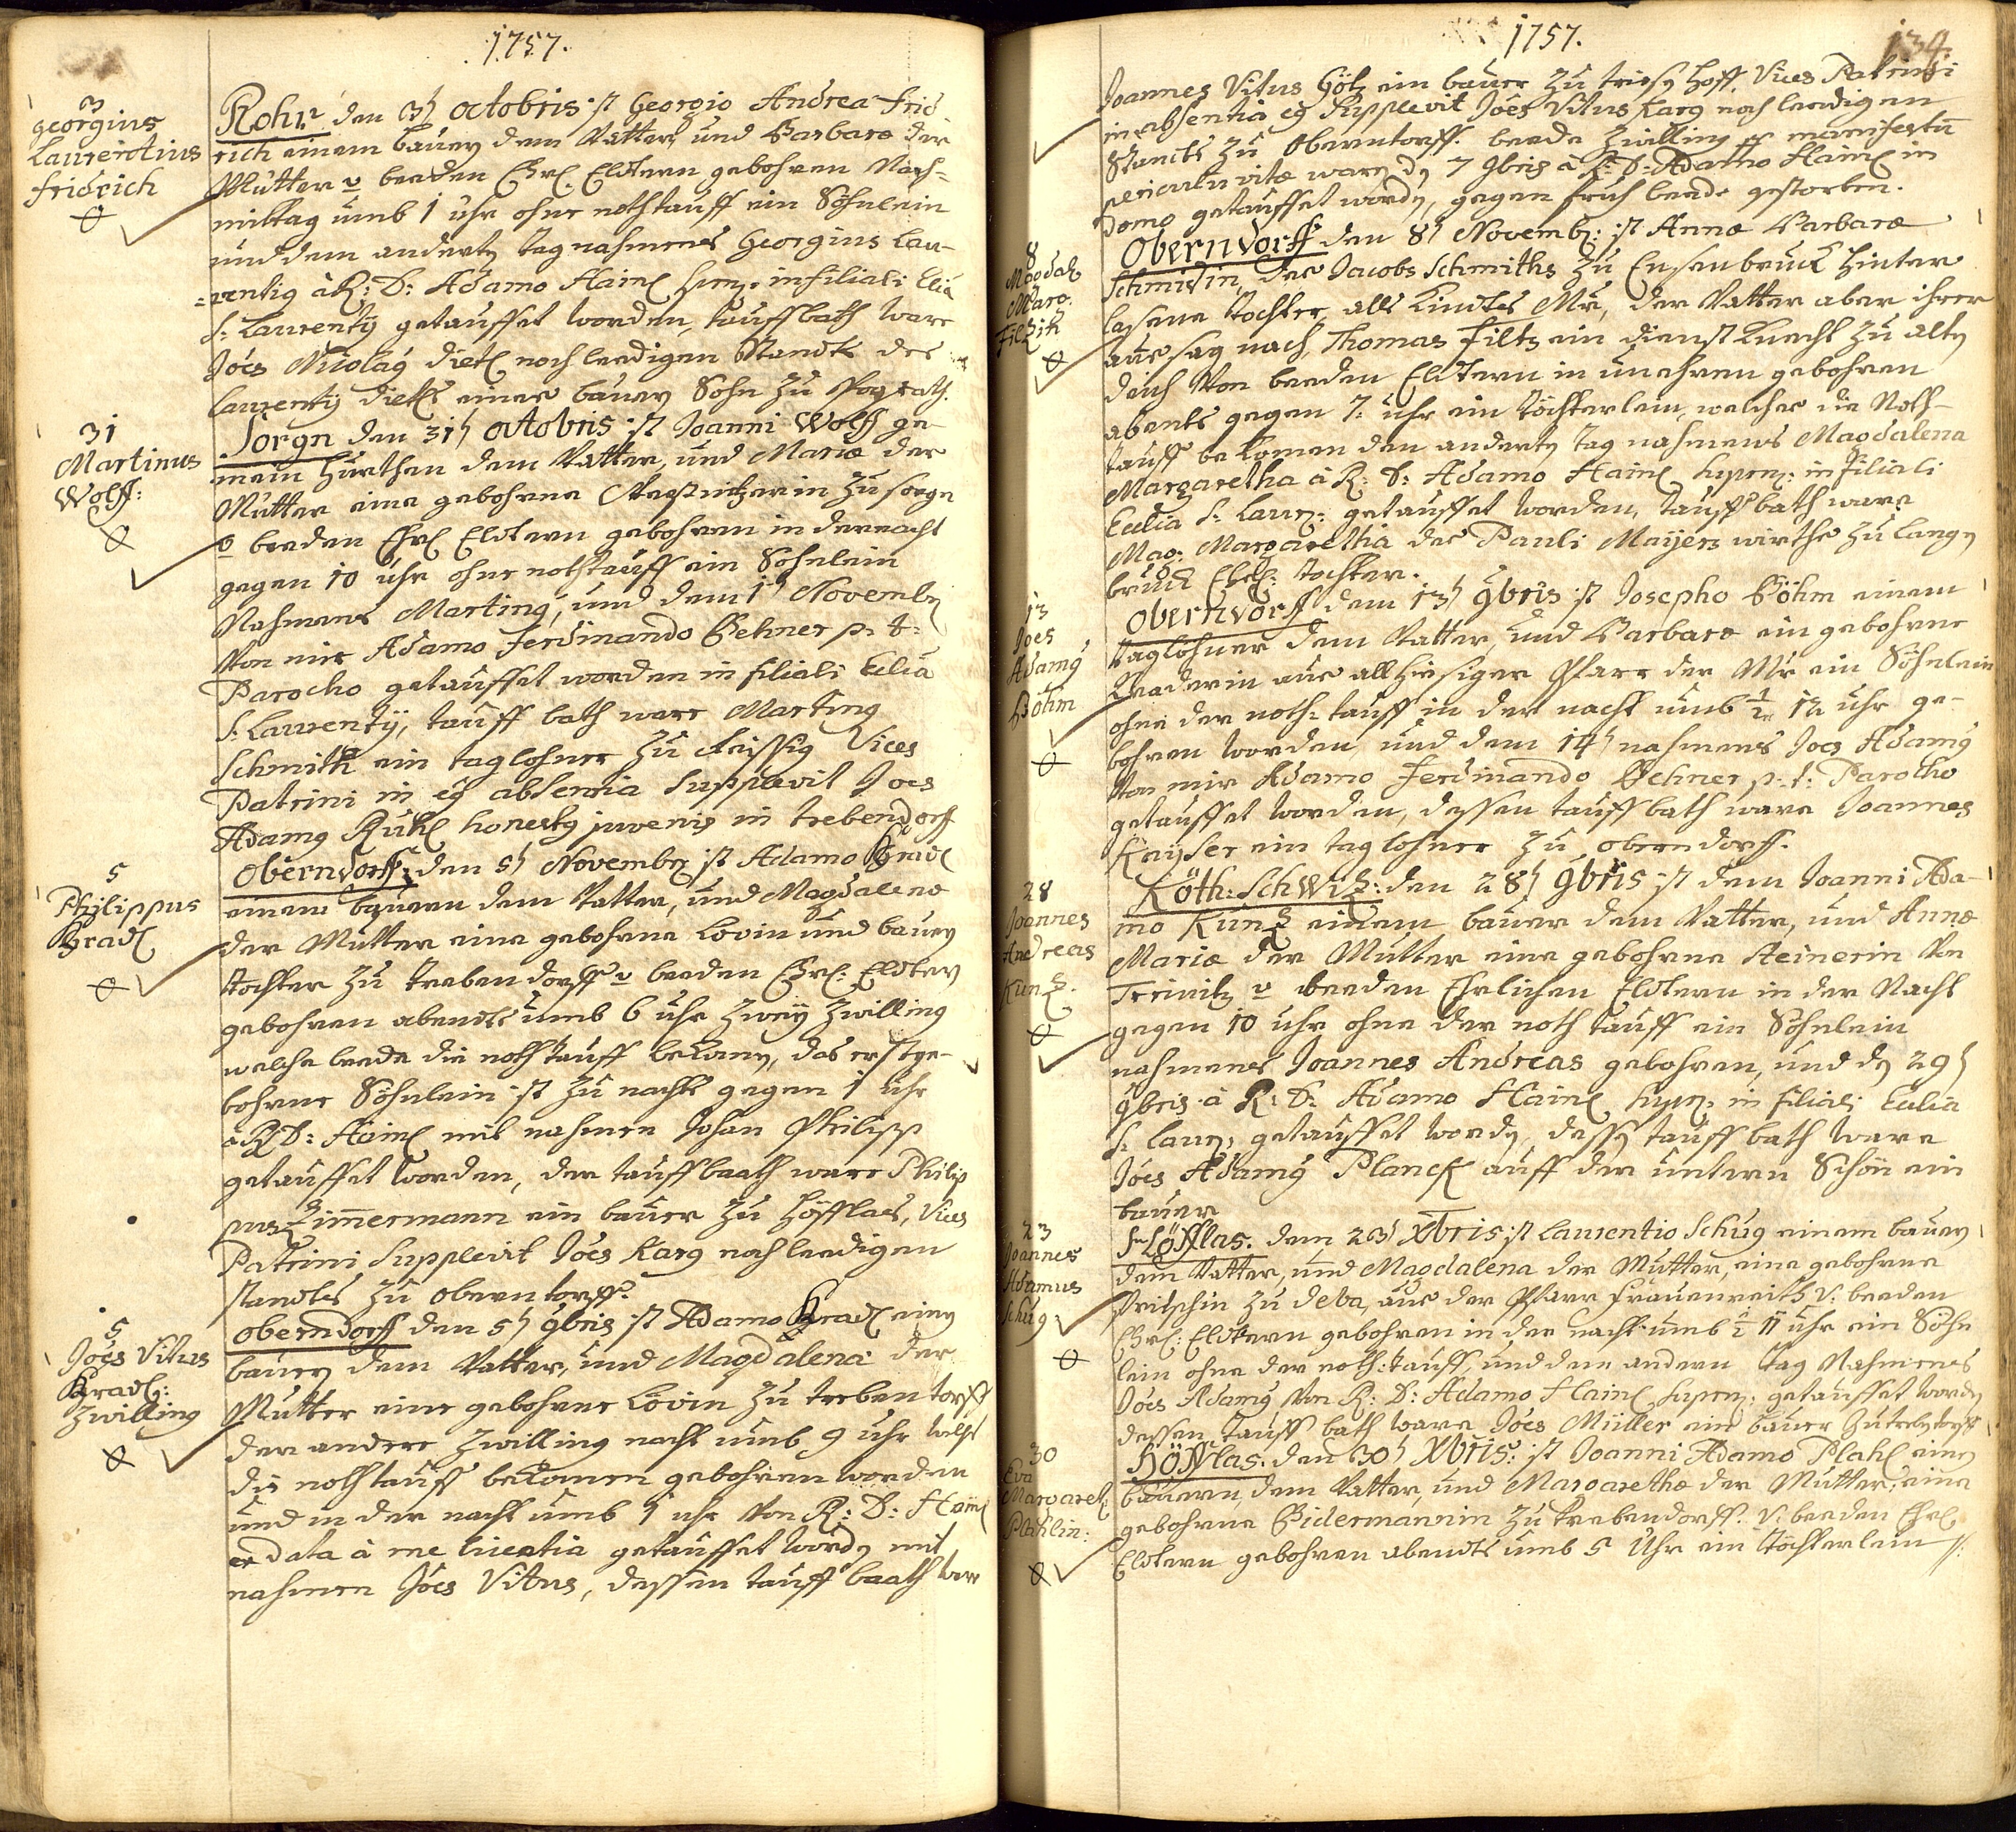 1757.
3
Georgius
Laurentius
fridrich
Rohr den 3t octobris ist Georgio Andrea frid
rich einem bauern dem Vatter, und Barbara der
Mutter v beeden Ehrl. Eldtern gebohren Nach-
mittag umb 1 uhr ohne nothtauff ein Söhnlein
und dem anderty tag nahmens Georgius Lau-
rentig à R: D: Adamo Hainl in filiali
S: Laurentij getauffet worden, tauffbath ware
Joës Nicolaỹ Dietl noch leedigen Standts des
Laurentij Dietl eines bauern Sohn zu
31
Martinus
Wolff:
Sorgn den 31t octobris ist Joanni Wolff ge-
mein hürthen dem Vatter, und Maria der
Mutter eine gebohrne zu sorgn
v beeden Ehrl Eldtern gebohren in der nacht
gegen 10 uhr ohne nothtauff ein Söhnlein
Nahmens Marting, und dem 1t Novembr
Von mir Adamo Ferdinando Behner p: t:
Parocho getauffet worden in filiali Eclia
S: Laurentij, tauff bath ware Marting
Schmith ein taglohner zu Vices
Patrini in eg absentia supplevit Joes
Adamg Rühl honestg juvenis in trebendorff
5
Philippus
Hradl
Oberndorff: den 5t Novembr ist Adamo Hradl
einem bauern dem Vatter, und Magdalena
der Mutter eine gebohrne Lövin und bauern
tochter zu trebendorff v beeden Ehrl: Eldtern
gebohren abendts umb 6 uhr zweÿ Zwilling
welche beede die nothtauff bekomen, das erstge-
bohrne Söhnlein ist zu nachts gegen 1 uhr
à R D: Hainl mit nahmen Johan Philipp
getauffet worden, der tauffbaath ware Philip
pus Zimmermann ein bauer zu Höfflas, Vices
Patrini supplevit Joës Karg noch leedigen
standts zu oberntorff.
5
Joës Vitus
Hradl:
Zwilling
Oberndorff den 5t 9bris ist Adamo Hradl einem
bauern dem Vatter, und Magdalena der
Mutter eine gebohrne Lövin zu trebentorff
der andere Zwilling nacht umb 9 uhr
die nothtauff bekomen gebohren worden
und in der nacht umb 1 uhr Von R: D: Hainl
ex data à me licentia getauffet wordn mit
nahmen Joës Vitus, dessen tauff baath ware
1757.
134.
Joannes Vitus Götz ein bauer zu hoff, Vices Patrini
in absentia eg supplevit Joës Vitus Karg noch leedigen
Standts zu Oberntorff. beede Zwilling manifestu
periculu vitæ ware dn 7 9bris à R: D: Adamo Hainl in
domo getauffet wordn, gegen fruh beede gestorben.
8
Magdal
Marg.
Filzin
Oberndorff den 8t Novemb: ist Anna Barbara
Schmidin des Jacobs Schmiths zu Ensenbruck hinter-
lassene tochter, alls Kindts Mr, der Vatter aber ihrer
aussag nach, Thomas Filtz ein dienst knecht zu alten
deich Von beeden Eldtern in unehren gebohren
abents gegen 7: uhr ein töchterlein, welches die Noth-
tauff bekomen den anderty tag nahmens Magdalena
Margaretha à R: D: Adamo Hainl in filiali
Eclia S: Laur: getauffet worden, tauff bath ware
Mag: Margaretha des Pauli Maÿers wirths zu Langn
bruck Ehel: tochter.
13
Joes
Adamg
Böhm
Oberndorff dem 13t 9bris ist Josepho Böhm einem
taglohner dem Vatter, und Barbara ein gebohrne
aus allhiesiger Pfarr der Mr ein Söhnlein
ohne der noth-tauff in der nacht umb 1/2 12 uhr ge-
bohren worden und dem 14t nahmens Joes Adamg
Von mir Adamo Ferdinando Behner p: t: Parocho
getauffet worden, dessen tauffbath ware Joannes
Kaÿser ein taglohner zu oberndorff.
28
Joannes
Andreas
Künz.
Köth: Schwiz: den 28t 9bris ist dem Joanni Ada-
mo Künz einem bauer dem Vatter, und Anna
Maria der Mutter eine gebohrne Steinerin Von
v beeden Ehrlichen Eldtern in der Nacht
gegen 10 uhr ohne der nothtauff ein Söhnlein
nahmens Joannes Andreas gebohren, und dn 29t
9bris à R: D: Adamo Hainl in filiali Eclia
S: Laur: getauffet wordn, dessn tauffbath ware
Joës Adamg Planck auff der untern Schön ein
bauer
23
Joannes
Adamus
Schug
Höfflas. dem 23t Xbris ist Laurentio Schug einem bauern
dem Vatter, und Magdalena der Mutter, eine gebohrne
Pritschin zu deba, aus der Pfarr frauenreith v. beeden
Ehrl: Eldtern gebohren in der nacht umb 1/2 11 uhr ein Söhn
lein ohne der noth-tauff, und dem andern tag Nahmens
Joës Adamg Von R: D: Adamo Hainl getauffet wordn
dessen tauff bath ware Joës Müller ein bauer zu trebentorff
30
Eva
Margaret
Plahlin:
Höfflas. den 30t Xbris: ist Joanni Adamo Plahl einem
bauern, dem Vatter, und Margaretha der Mutter, eine
gebohrne Bidermannin zu trebendorff. v. beeden Ehrl
Eldtern gebohren abendts umb 5 Uhr ein töchterlein